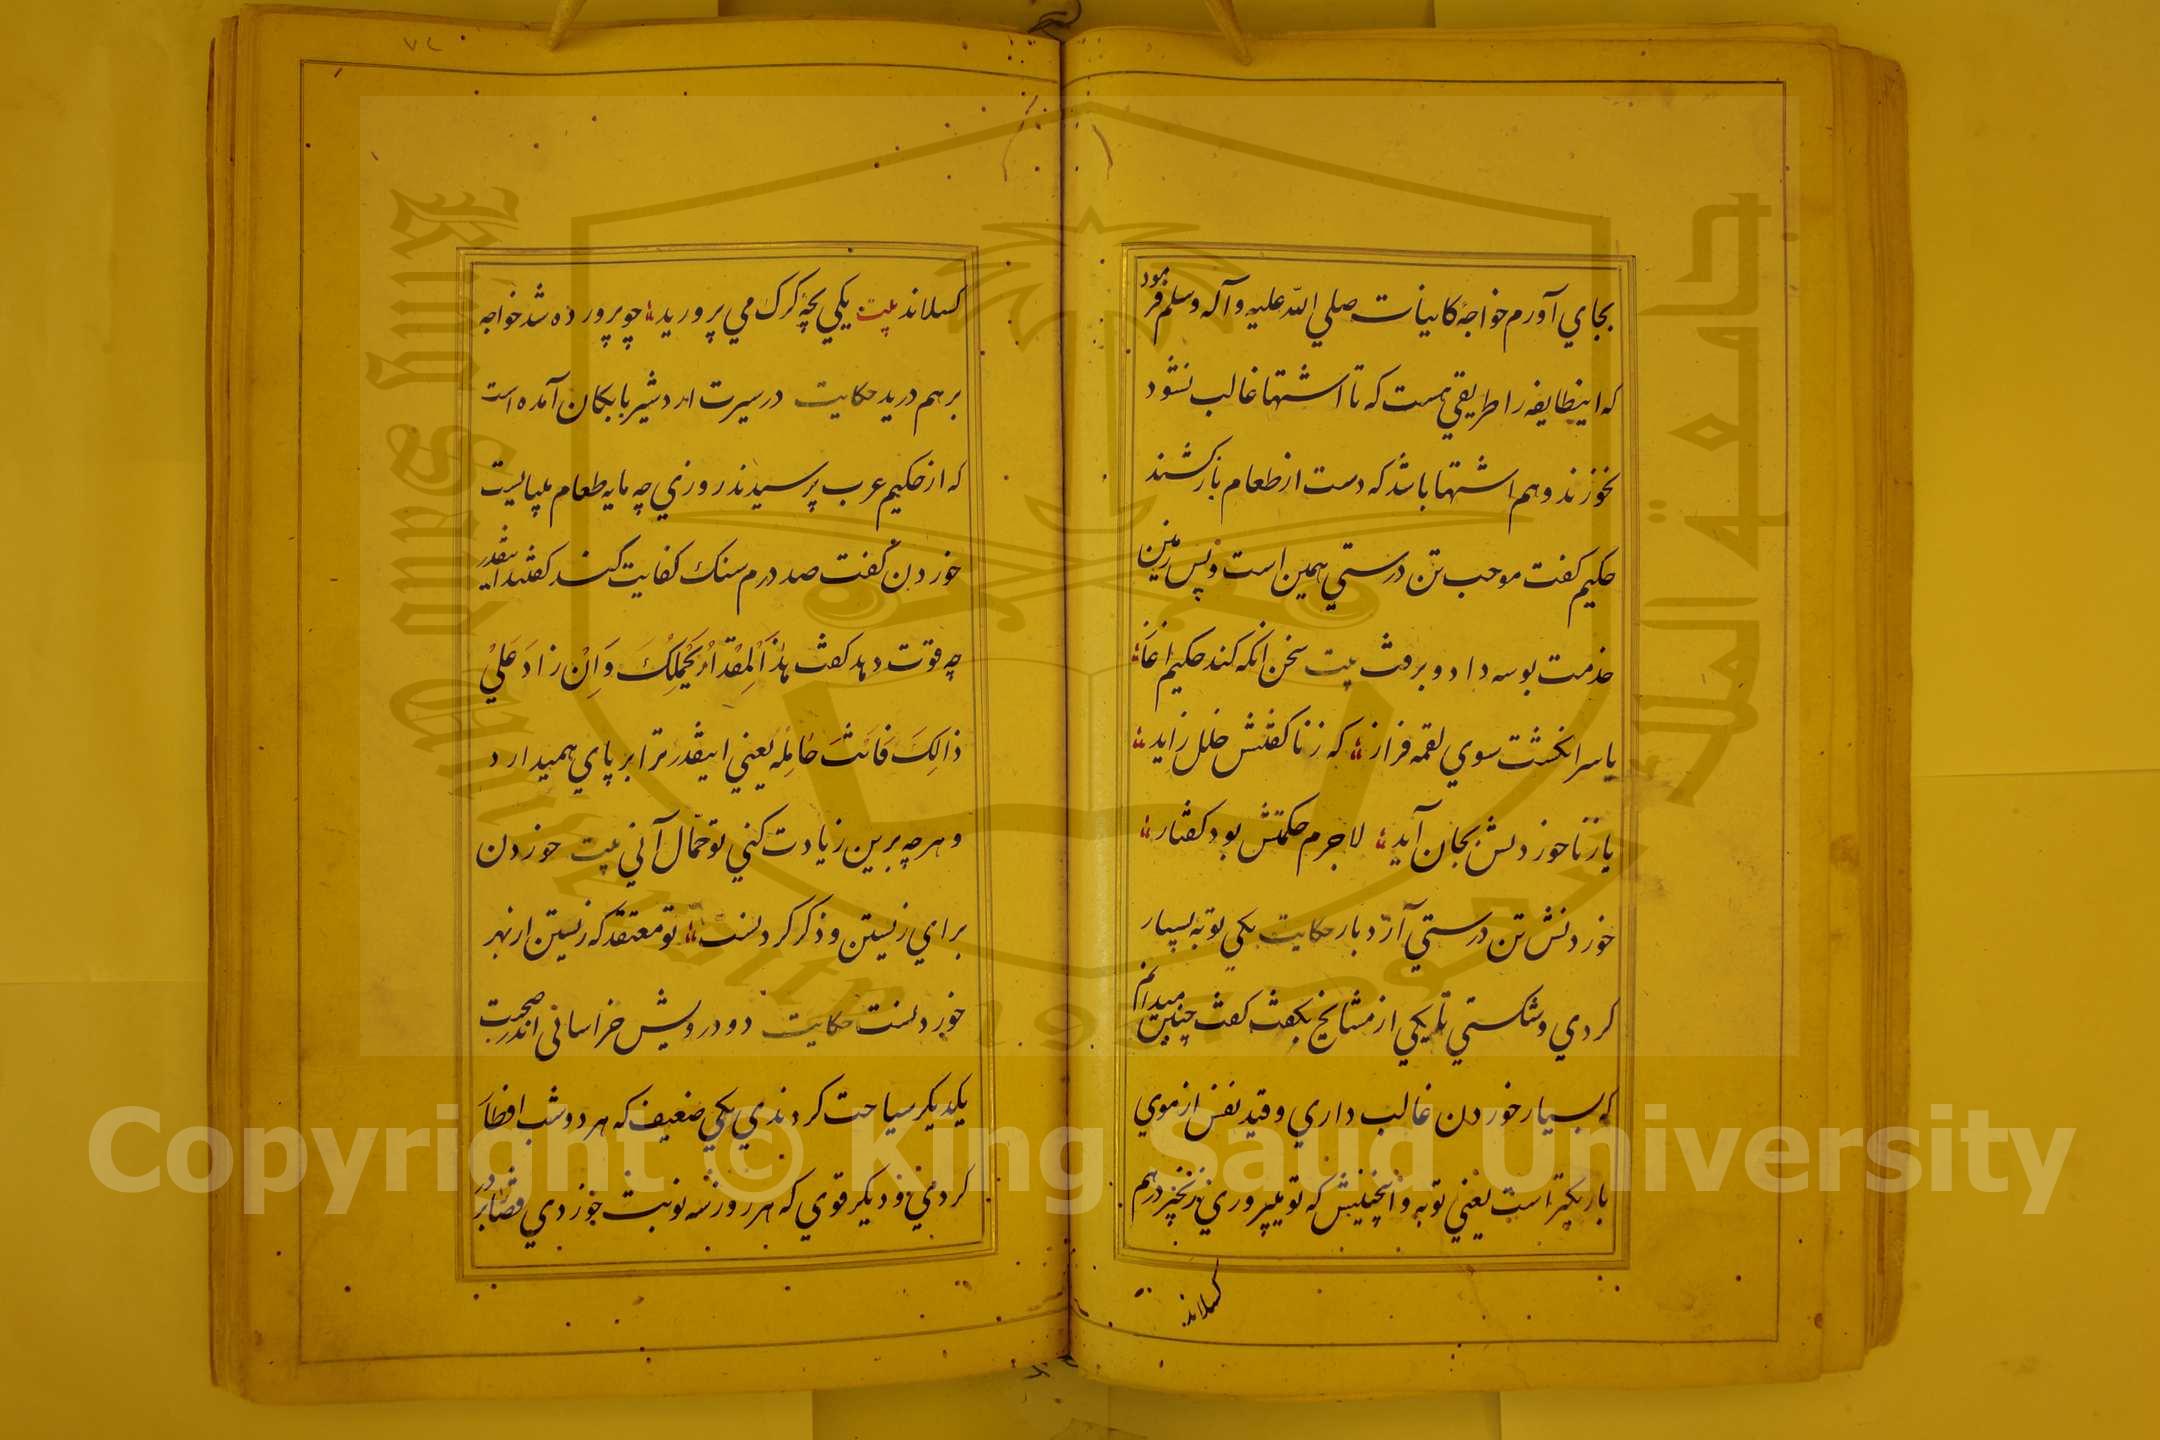 بجاي آورم خواجهٔ كاينات صلي الله عليه وآله وسلم فرمود
كه اينطايفه را طريقي هست كه تا اشتها غالب نشود
نخورند وهم اشتها باشد كه دست از طعام باز كشند
حكيم كفت موجب تن درستي همين است وپس زمين
خدمت بوسه داد و برفت بيت سخن انكه كند حكيم اغاز
يا سر انكشت سوي لقمه فراز كه زنا كفتنش خلل زايد
يا زنا خوردنش بجان آيد لاجرم حكمتش بود كفتار
خوردنش تن درستي آرد بار حكايت يكي توبهٔ بسيار
كردي وشكستي تا يكي از مشايخ بكفت كفت چنين ميدانم
كه بسيار خوردن غالب داري وقيد نفس از موي
باريكتر است يعني توبه وانچنينش كه تو ميپروري زنجير درهم
كسلاند
كسلاند بيت يكي بچهٔ كرك مي پروريد چو پرورده شد خواجه
برهم دريد حكايت در سيرت اردشير بابكان آمده است
كه از حكيم عرب پرسيدند روزي چه مايه طعام ميبايست
خوردن كفت صد درم سنك كفايت كند كفتند اينقدر
چه قوت دهد كفت هذا المقدار يحملك وان زاد علي
ذالك فانت حامله يعني اينقدر ترا بر پاي هميدارد
و هرچه برين زيادت كني تو حمال آني بيت خوردن
براي زيستن وذكر كردنست تو معتقد كه زيستن از بهر
خوردنست حكايت دو درويش خراساني اندر صحبت
يكديكر سياحت كردندي يكي ضعيف كه هر دو شب افطار
كردمي و ديكر قوي كه هر روز سه نوبت خوردي قضا را بر در
٧٢
جامعة الملك سعود
King Saud University
1957
Copyright © King Saud University